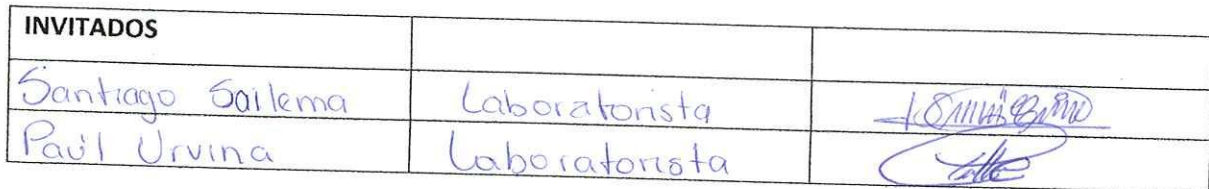 INVITADOS
Santiago Sailema Laboratorista
Paúl Urvina Laboratorista